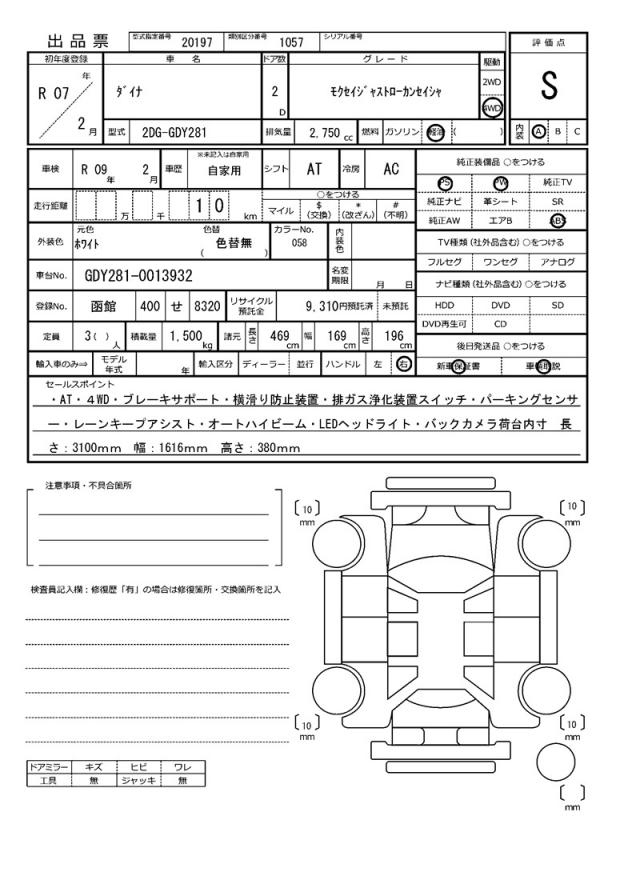 出品票 型式指定番号 20197 類別区分番号 1057 シリアル番号
初年度登録 車名 ドア数 グレード 駆動 評価点
R 07 年 2 月 ﾀﾞｲﾅ 2 D ﾓｸｾｲｼﾞｬｽﾄﾛｰｶﾝｾｲｼｬ 2WD 4WD S
型式 2DG-GDY281 排気量 2,750 cc 燃料 ガソリン 軽油 ( ) 内装 A B C
車検 R 09 年 2 月 車歴 ※未記入は自家用 自家用 シフト AT 冷房 AC
純正装備品 ○をつける
PS PW 純正TV
走行距離 万 千 1 0 km ○をつける
マイル $ (交換) * (改ざん) # (不明)
純正ナビ 革シート SR
純正AW エアB ABS
外装色 元色 ﾎﾜｲﾄ 色替 色替無 ( ) カラーNo. 058 内装色
TV種類 (社外品含む) ○をつける
フルセグ ワンセグ アナログ
車台No. GDY281-0013932 名変期限 月 日
ナビ種類 (社外品含む) ○をつける
登録No. 函館 400 せ 8320 リサイクル預託金 9,310円預託済 未預託
HDD DVD SD
DVD再生可 CD
定員 3( ) 人 積載量 1,500 kg 諸元 長さ 469 cm 幅 169 cm 高さ 196 cm
後日発送品 ○をつける
輸入車のみ⇒ モデル年式 年 輸入区分 ディーラー 並行 ハンドル 左 右
新車保証書 車輌取説
セールスポイント
・AT・４WD・ブレーキサポート・横滑り防止装置・排ガス浄化装置スイッチ・パーキングセンサ
ー・レーンキープアシスト・オートハイビーム・LEDヘッドライト・バックカメラ荷台内寸　長
さ：3100mm　幅：1616mm　高さ：380mm
注意事項・不具合箇所
[10] mm [10] mm
検査員記入欄：修復歴「有」の場合は修復箇所・交換箇所を記入
[10] mm [10] mm
ドアミラー キズ ヒビ ワレ
工具 無 ジャッキ 無
[ ] mm